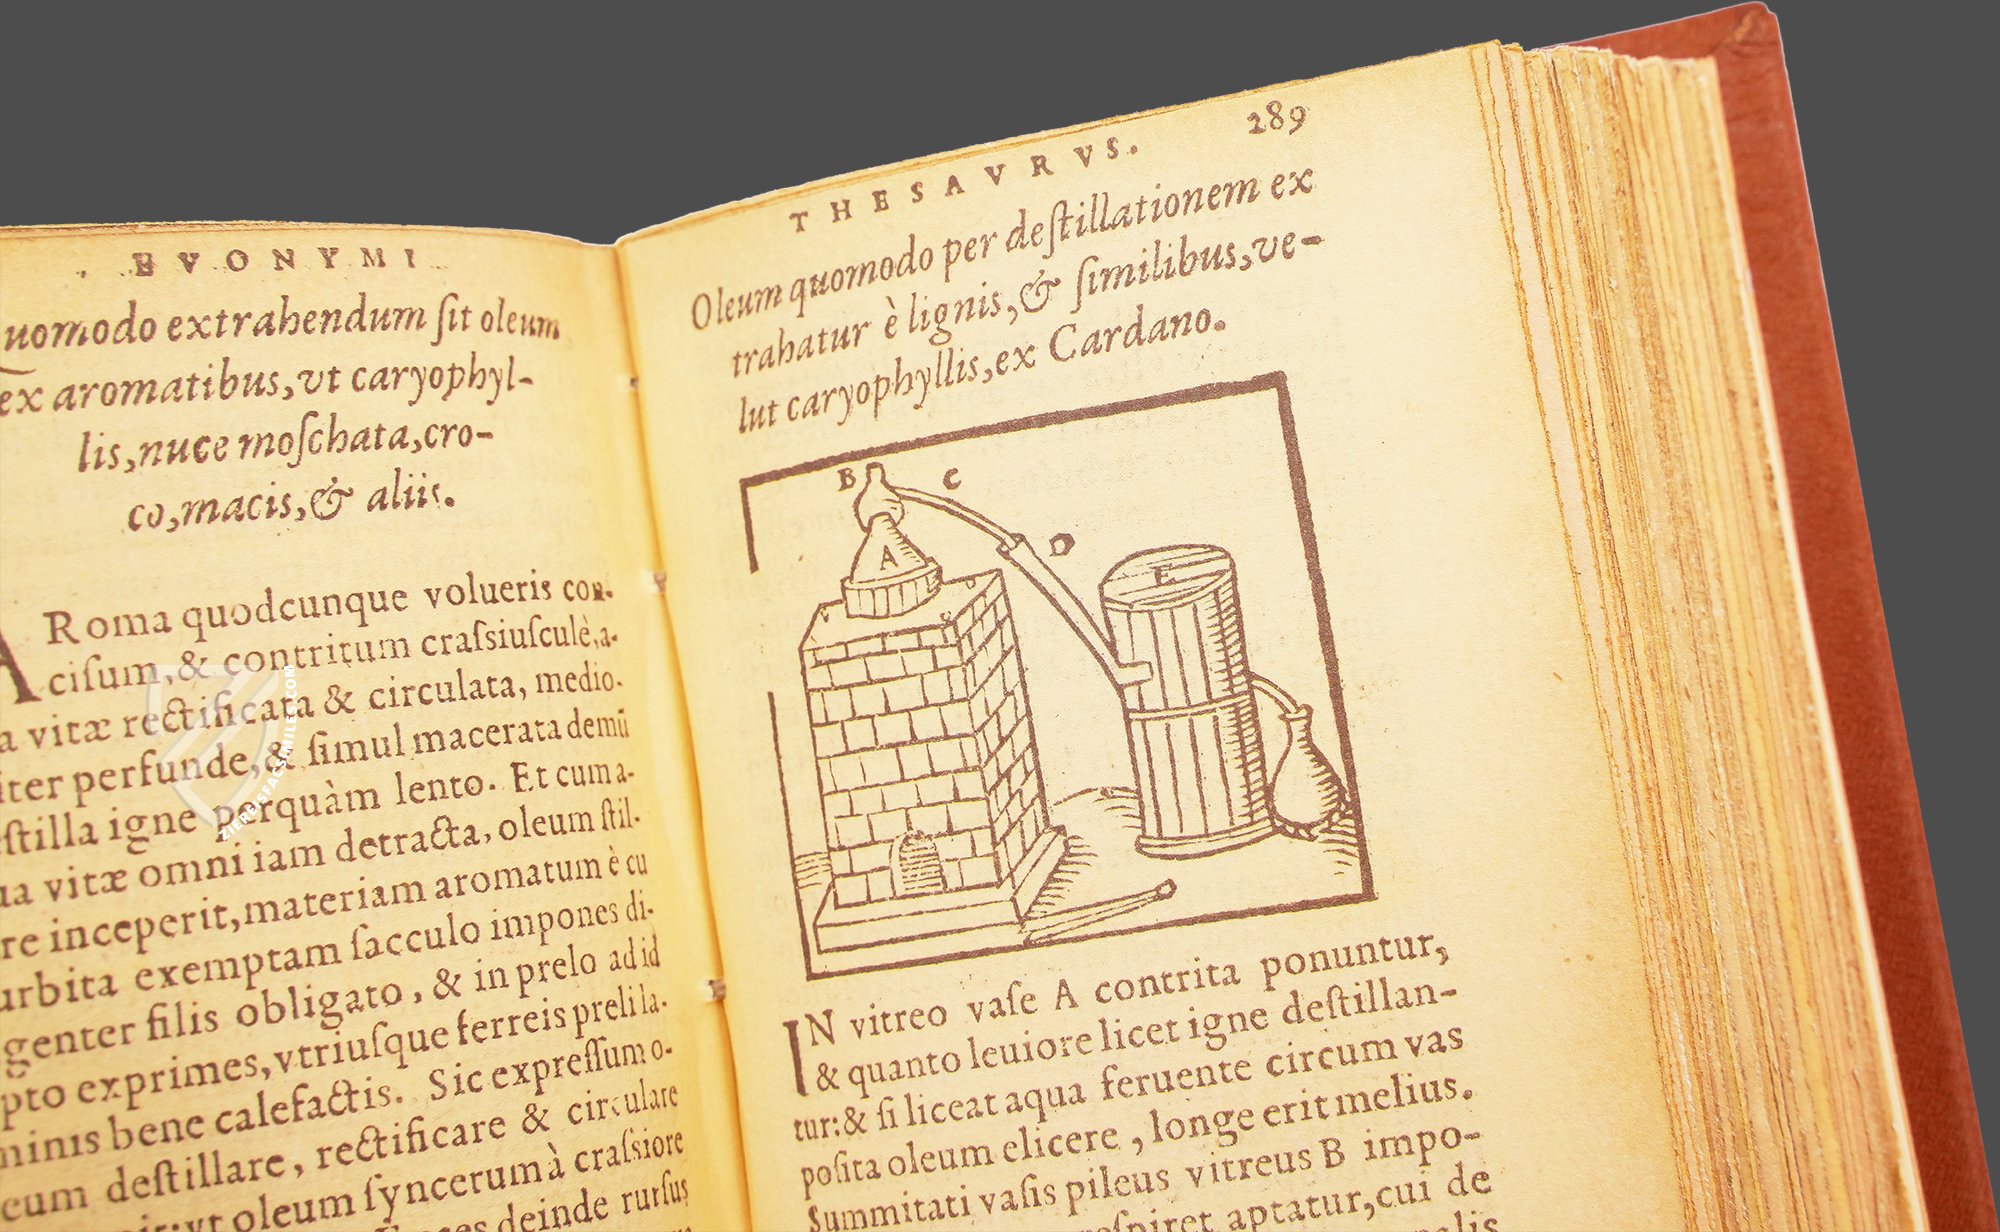 EVONYMI
uomodo extrahendum ſit oleum
ex aromatibus, vt caryophyl-
lis, nuce moſchata, cro-
co, macis, & aliis.
ARoma quodcunque volueris con-
ciſum, & contritum craſsiuſculè, a-
a vitæ rectificata & circulata, medio-
iter perfunde, & ſimul macerata demū
eſtilla igne perquàm lento. Et cum a-
ua vitæ omni iam detracta, oleum ſtil-
re inceperit, materiam aromatum è cu
urbita exemptam ſacculo impones di-
genter filis obligato, & in prelo ad id
pto exprimes, vtriuſque ferreis preli la-
minis bene calefactis. Sic expreſſum o-
eum deſtillare, rectificare & circulare
vt oleum ſyncerum à craſsiore
deinde rurſus
THESAVRVS. 289
Oleum quomodo per deſtillationem ex
trahatur è lignis, & ſimilibus, ve-
lut caryophyllis, ex Cardano.
B C
D
A
E
IN vitreo vaſe A contrita ponuntur,
& quanto leuiore licet igne deſtillan-
tur: & ſi liceat aqua feruente circum vas
poſita oleum elicere, longe erit melius.
Summitati vaſis pileus vitreus B impo-
reſpiret aptatur, cui de
ZIEREISFACSIMILES.COM